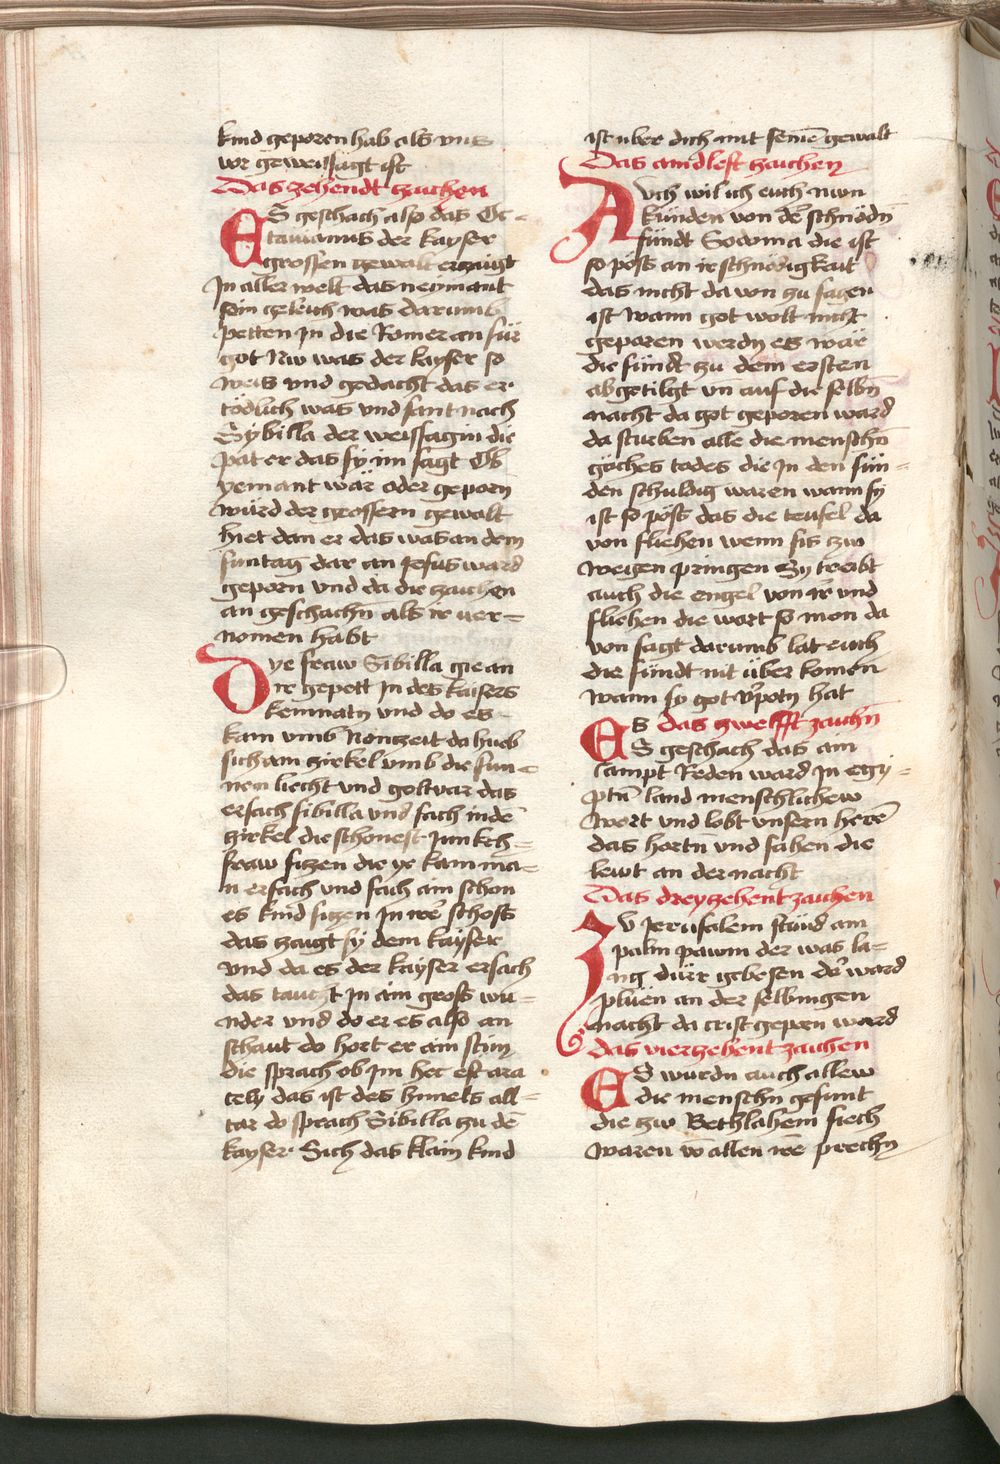 kind geporen hab als vnns
vor geweissagt ist
Das zehendt zaichen
ES geschach also das Oc-
tauianus der kayser
grossen gewalt erzaigt
In aller welt das neymant
sein geleich was darumb
petten In die Romer an für
got Nw was der kayser so
weis vnd gedacht das er
tödlich was vnd sant nach
Sybilla der weissagin die
pat er das sy im sagt Ob
yemant wär oder geporn
würd der grossern gewalt
hiet dan er das was an dem
suntag dar an Jesus ward
geporn vnd da die zaichen
an geschachn als ir ver=
nomen habt
Dye fraw Sibilla gie an
ir gepett In des kaisers
kemnatn vnd do es
kam vmb Nontzeit da hueb
sich ain zirkel vmb die sun=
nen liecht vnd goltvar das
ersach sibilla vnd sach in dē
zirkel die schonest Junkch=
fraw sitzen die ye kain ma=
n ersach vnd sach ain schon
es kind sitzen In irē schoss
das zaigt sy dem kayser
vnd da es der kayser ersach
das taucht In ain gross wu=
nder vnd do er es also an
schaut do hort er ain stim
die sprach ob Im hec est ara
cely das ist des himels all=
tar do sprach Sibilla zu dē
kayser Sich das klain kind
ist vber dich mit seinē gewalt
Das aindlefft zaichen
AVch wil ich euch nun
künden von dē schnödn
sündt Sodoma die ist
so pöss an ir schnödigkait
das nicht da von zu sagen
ist wann got wolt nicht
geporen werdn es wär
die sündt zu dem ersten
abgetilgt vn̄ auf die selbn̄
nacht da got geporen ward
da sturben alle die menschn̄
gäches todes die In den sün=
den schuldig waren wann sy
ist so pöss das die teufel da
von fliehen wenn sis zw
wegen pringen Sy treibt
auch die engel von ir vnd
fliehen die wort so mon da
von sagt darumb lat euch
die sündt nit über komen
wann sy got v'potn hat
ES das zwelfft zaichn̄
S geschach das ain
lampt Reden ward In egi=
ptn̄ land menschlichew
wort vnd lobt vnsern herrē
das hortn̄ vnd sahen die
lewt an der nacht
Das dreyzehent zaichen
ZV Jerusalem stuŭd ain
palm pawm der was la=
ng dürr gebesen der ward
plüen an der selbingen
nacht da crist geporn ward
das vierzehent zaichen
ES wurdn auch allew
die menschn gesunt
die zw Bethlahem siech
waren vō allen irē prechn